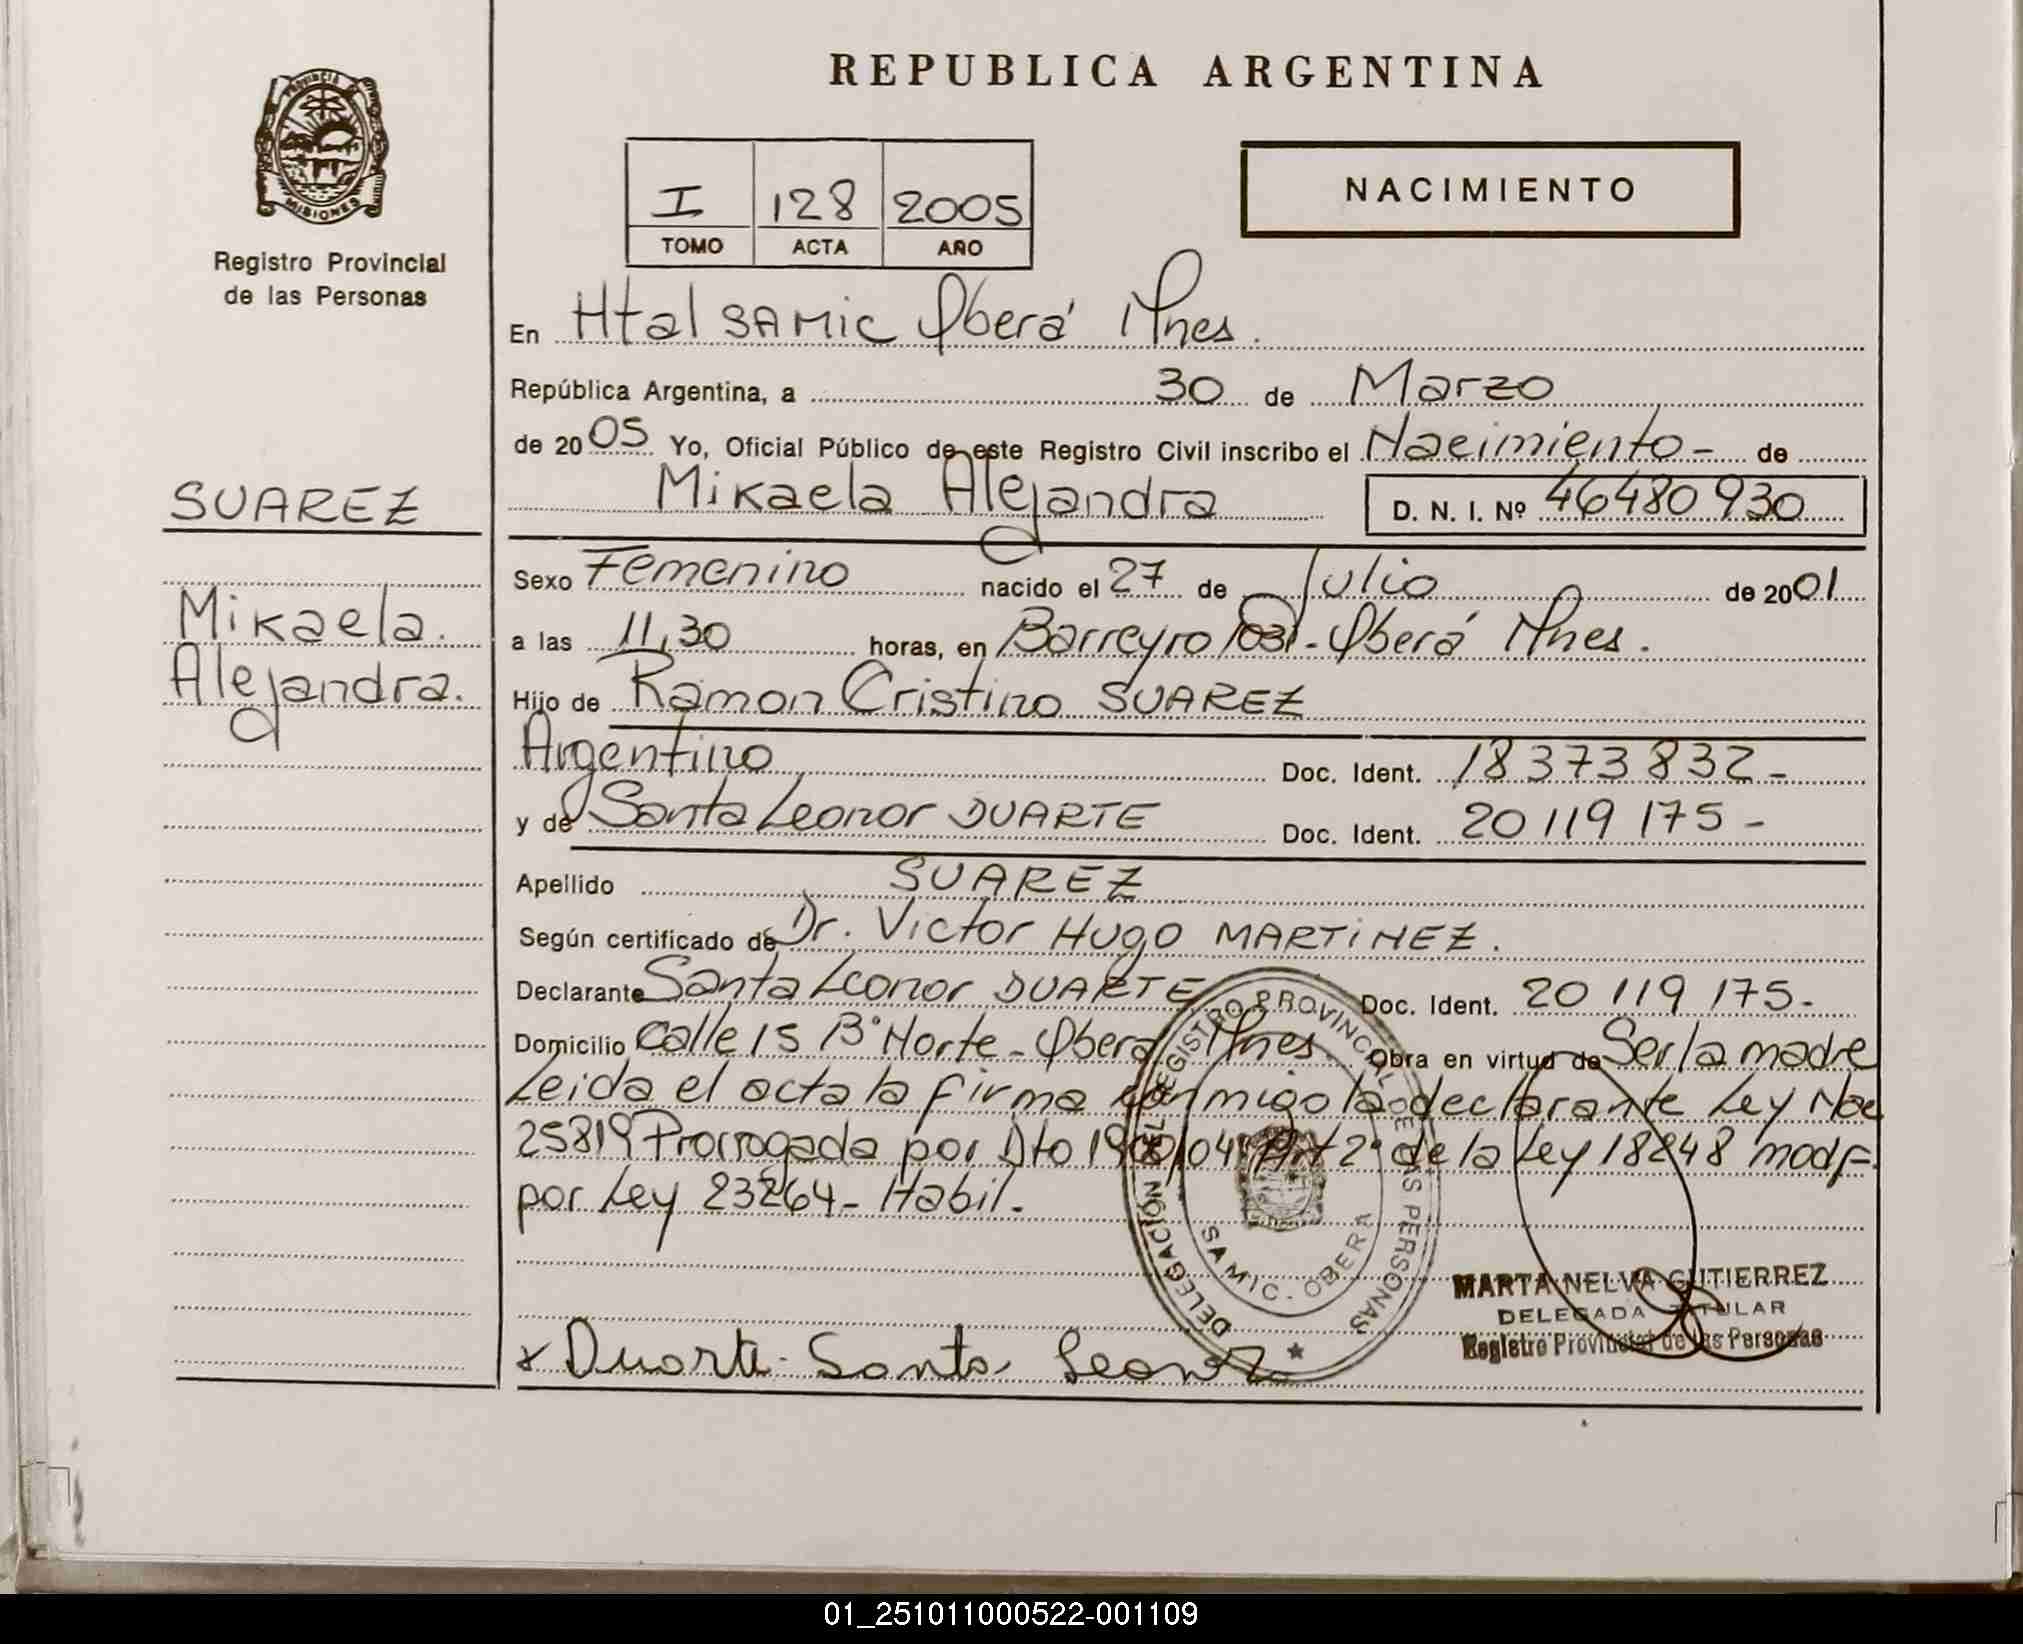 REPUBLICA ARGENTINA
PROVINCIA DE MISIONES
Registro Provincial
de las Personas
I 128 2005
TOMO ACTA AÑO
NACIMIENTO
En Htal SAMIC Oberá Mnes.
República Argentina, a 30 de Marzo
de 2005 Yo, Oficial Público de este Registro Civil inscribo el Nacimiento - de
Mikaela Alejandra D. N. I. Nº 46480930
SUAREZ
Mikaela.
Alejandra.
Sexo Femenino nacido el 27 de Julio de 2001
a las 11,30 horas, en Barreyro 1031 - Oberá Mnes.
Hijo de Ramon Cristino SUAREZ
Argentino Doc. Ident. 18373832 -
y de Santa Leonor DUARTE Doc. Ident. 20119175 -
Apellido SUAREZ
Según certificado de Dr. Victor Hugo MARTINEZ.
Declarante Santa Leonor DUARTE Doc. Ident. 20119175 -
Domicilio Calle 15 Bº Norte - Oberá Mnes. Obra en virtud de Ser la madre
Leida el acta la firma conmigo la declarante Ley Nac
25819 Prorrogada por Dto 1900/04 Art 2º de la Ley 18248 modf.
por Ley 23264 - Habil.
DELEGACIÓN DEL REGISTRO PROVINCIAL DE LAS PERSONAS
SAMIC - OBERA
MARTA NELVA GUTIERREZ
DELEGADA TITULAR
Registro Provincial de las Personas
x Duarte Santa Leonor
01_251011000522-001109